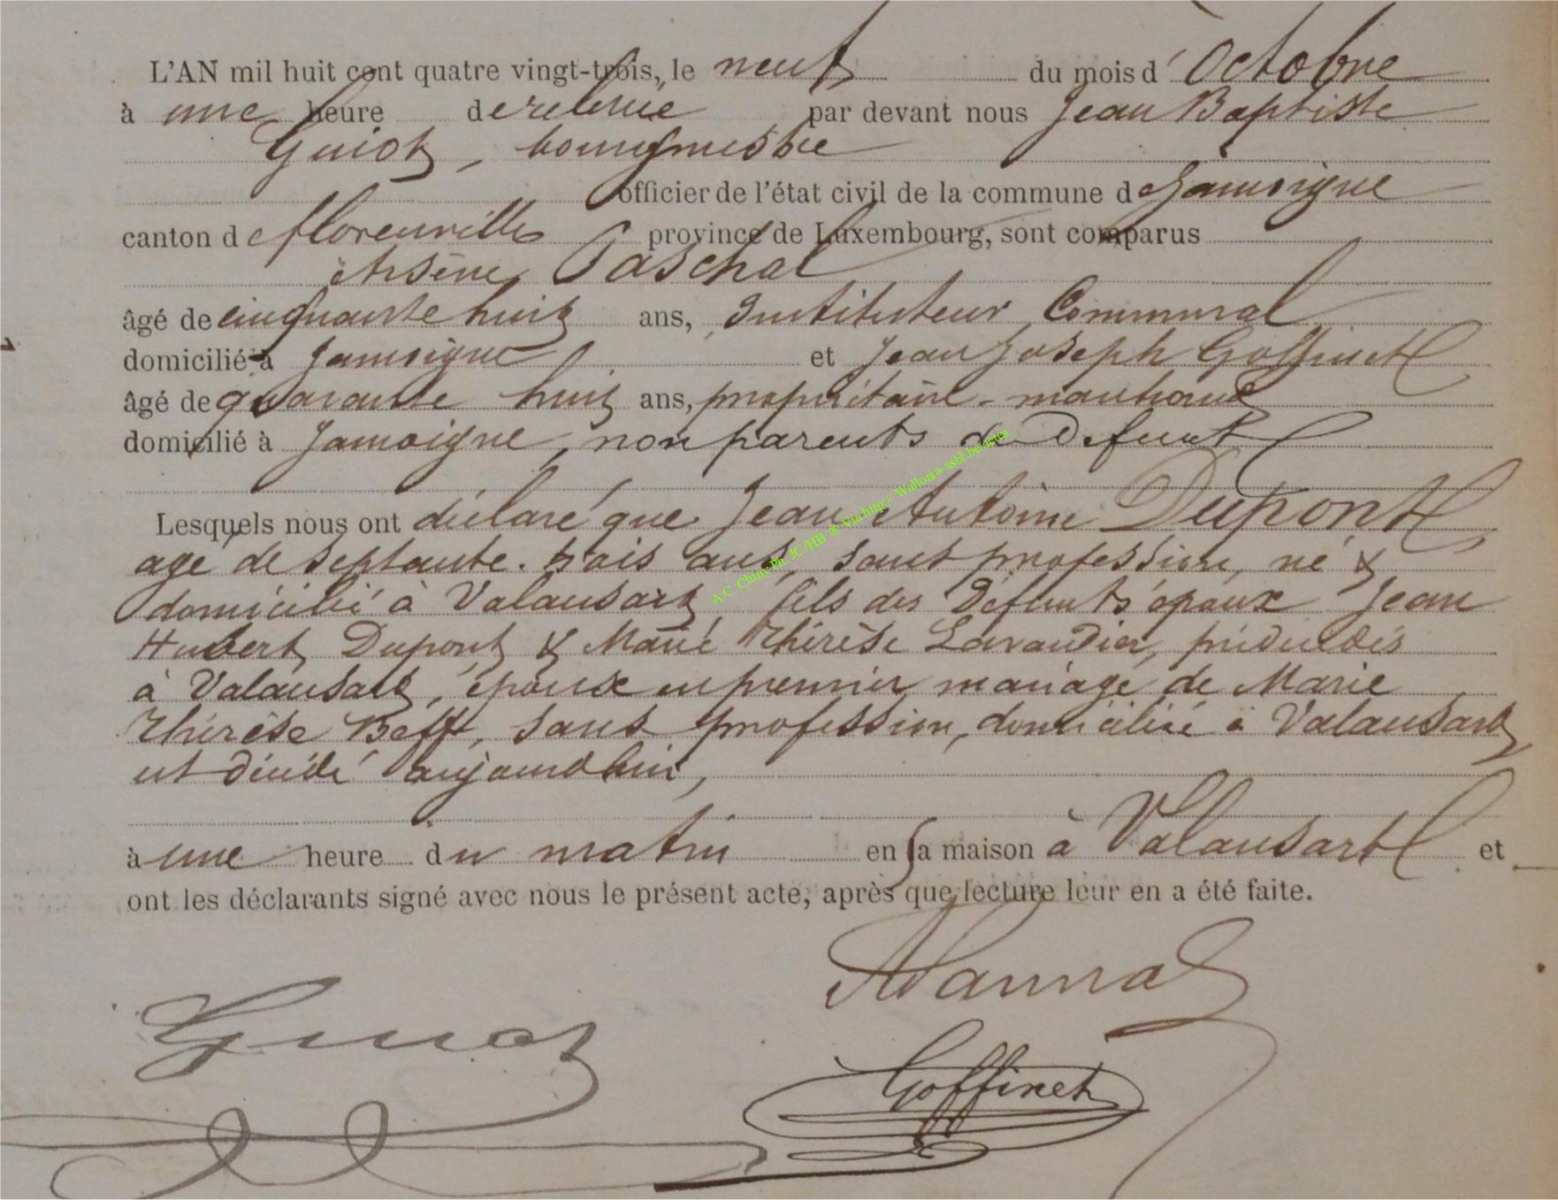 L'AN mil huit cent quatre vingt-trois, le neuf du mois d'Octobre
à une heure de relevée par devant nous Jean Baptiste
Guiot, bourgmestre
officier de l'état civil de la commune de Jamoigne
canton de florenville province de Luxembourg, sont comparus
Arsène Paschal
âgé de cinquante huit ans, Instituteur Communal
domicilié à Jamoigne et Jean Joseph Goffinet
âgé de quarante huit ans, propriétaire - marchand
domicilié à Jamoigne, non parents du Défunt
Lesquels nous ont déclaré que Jean Antoine Dupont
age de septante-trois ans, sans profession, né &
domicilié à Valansart, fils des Défunts époux Jean
Hubert Dupont & Marie Thérèse Lavaudier, prédécédés
à Valansart, époux en premier mariage de Marie
Thérèse Beff, sans profession, domiciliée à Valansart
est décédé aujourdhui,
à une heure du matin en sa maison à Valansart et
ont les déclarants signé avec nous le présent acte, après que lecture leur en a été faite.
Guiot
Goffinet